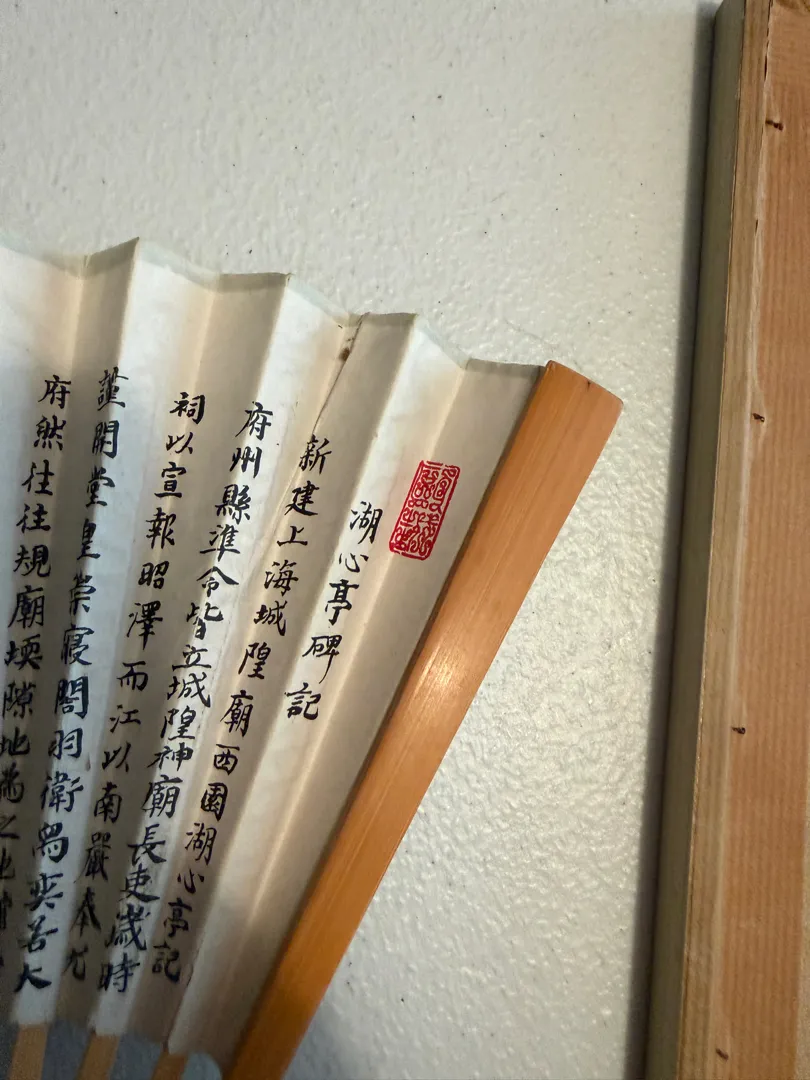 湖心亭碑記
新建上海城隍廟西園湖心亭記
府州縣準令皆立城隍神廟長吏歲時
祠以宣報昭澤而江以南嚴奉尤
謹開堂皇崇寢閣羽衛舄奕若大
府然往往規廟堧隙地為之